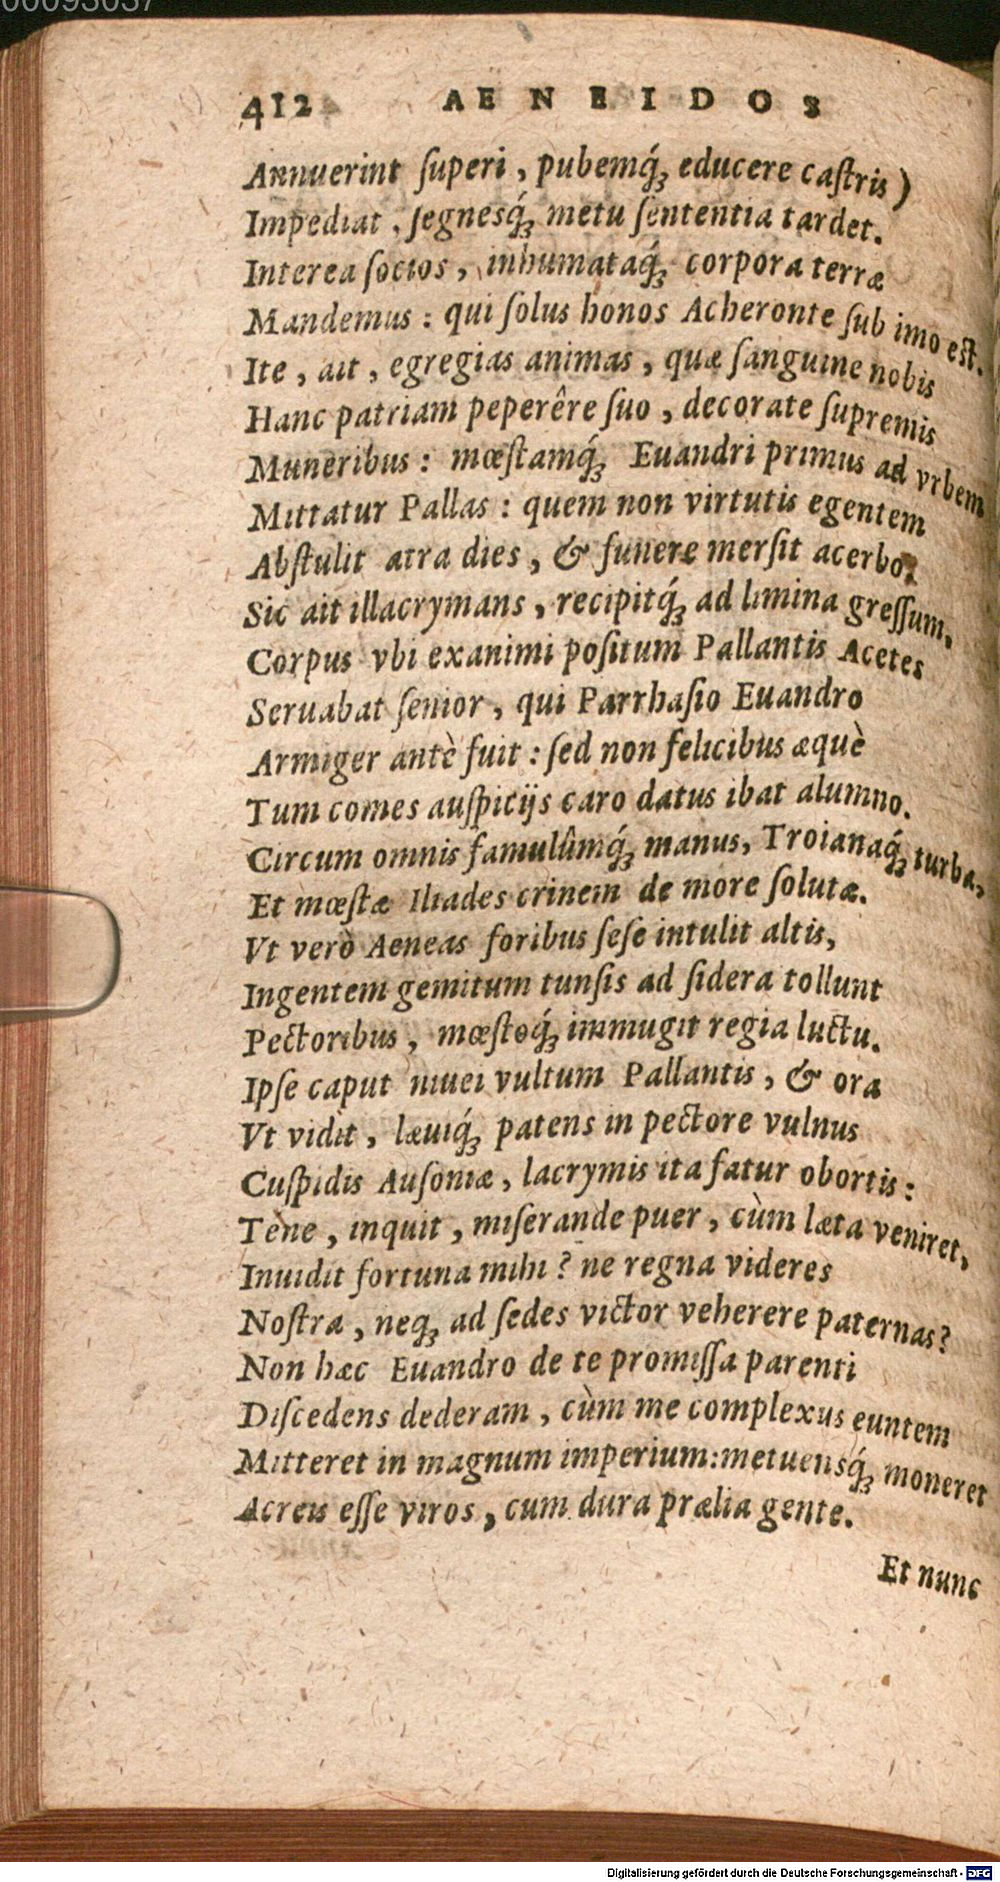 00093037
412 AENEIDOS
Annuerint ſuperi, pubemq́ꝫ educere caſtris)
Impediat, ſegnesq́ꝫ metu ſententia tardet.
Interea ſocios, inhumataq́ꝫ corpora terræ
Mandemus: qui ſolus honos Acheronte ſub imo eſt.
Ite, ait, egregias animas, quæ ſanguine nobis
Hanc patriam peperêre ſuo, decorate ſupremis
Muneribus: mœſtamq́ꝫ Euandri primus ad vrbem
Mittatur Pallas: quem non virtutis egentem
Abſtulit atra dies, & funere merſit acerbo.
Sic ait illacrymans, recipitq́ꝫ ad limina greſſum,
Corpus vbi exanimi poſitum Pallantis Acetes
Seruabat ſenior, qui Parrhaſio Euandro
Armiger antè fuit: ſed non felicibus æquè
Tum comes auſpicijs caro datus ibat alumno.
Circum omnis famulûmq́ꝫ manus, Troianaq́ꝫ turba,
Et mœſtæ Iliades crinem de more ſolutæ.
Vt verò Aeneas foribus ſeſe intulit altis,
Ingentem gemitum tunſis ad ſidera tollunt
Pectoribus, mœſtoq́ꝫ immugit regia luctu.
Ipſe caput niuei vultum Pallantis, & ora
Vt vidit, læuiq́ꝫ patens in pectore vulnus
Cuſpidis Auſoniæ, lacrymis ita fatur obortis:
Tène, inquit, miſerande puer, cùm læta veniret,
Inuidit fortuna mihi? ne regna videres
Noſtra, neqꝫ ad ſedes victor veherere paternas?
Non hæc Euandro de te promiſſa parenti
Diſcedens dederam, cùm me complexus euntem
Mitteret in magnum imperium: metuensq́ꝫ moneret
Acreis eſſe viros, cum dura prælia gente.
Et nunc
Digitalisierung gefördert durch die Deutsche Forschungsgemeinschaft - DFG